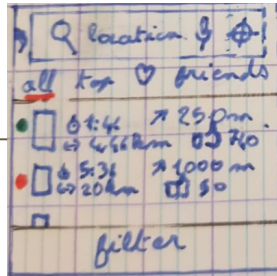 location
all top friends
1:46 ↗ 250m
↔ 4,46km 740
5:36 ↗ 1000m
↔ 20km 50
filter